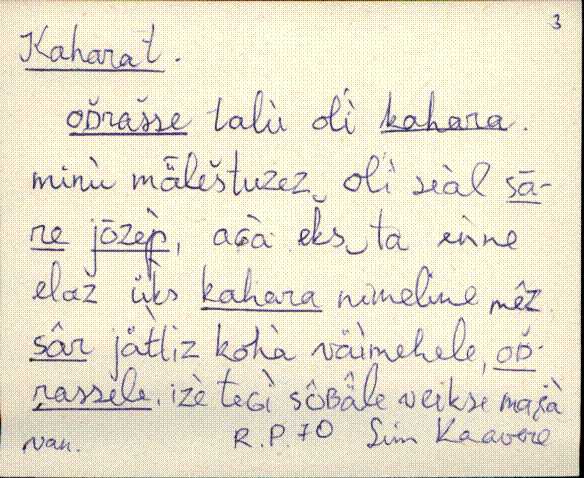 3
Kaharat.
oʙ̆rašse talù olì kahara.
minù mǟleštuzez olì seàl sā-
re jōzèp, aɢà êks ta enne
elaz üks kahara nimeline mêz.
sâr jättiz kohà väìmehele, oʙ̆-
rassele. izè teɢì sôʙǟle veikse majà
van. R.P. 70 Siim Kaavere